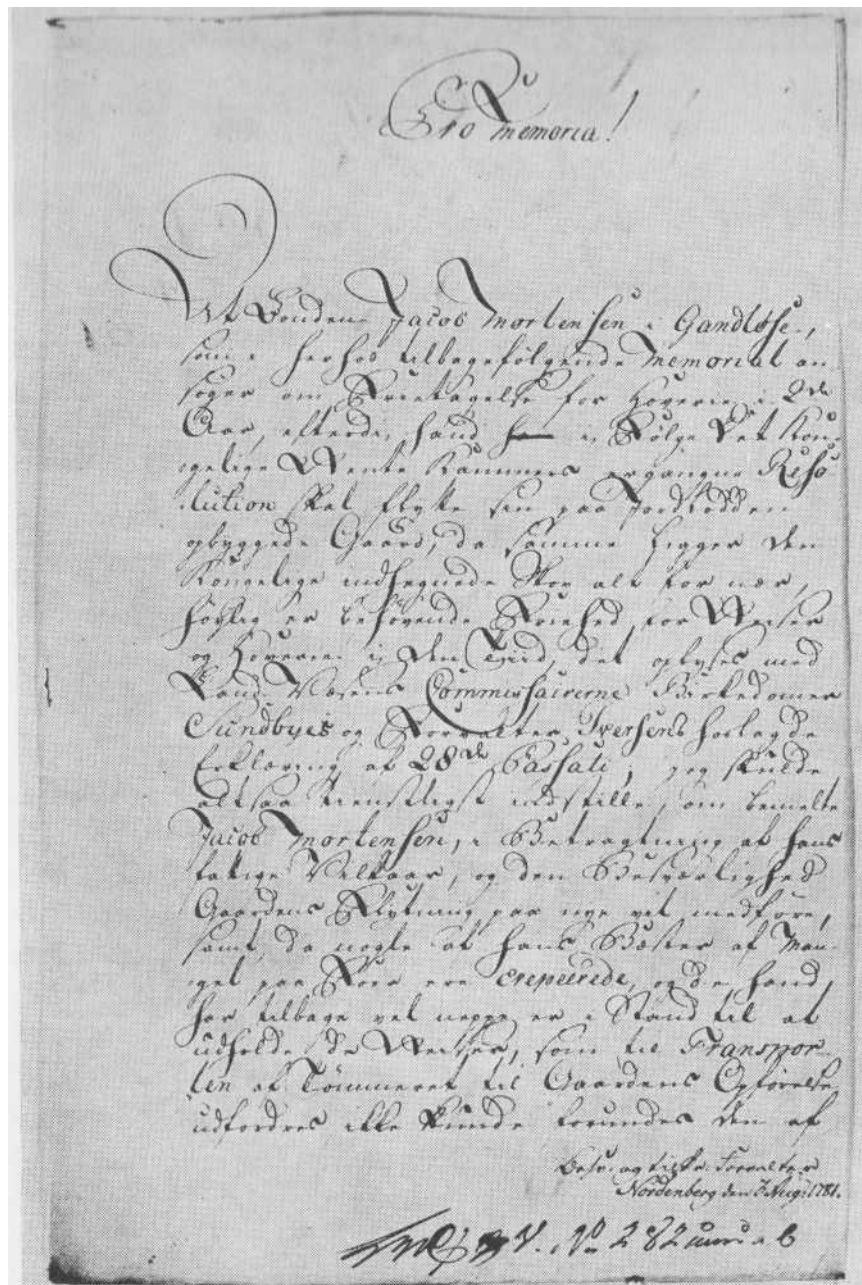 Pro Memoria!
At Bonden Jacob Mortensen i Gandløse,
som i herhos tilbagefølgende Memorial an-
søger om Frietagelse for Hoverie i 2de
Aar, efterdi hand i Følge Det Kon-
gelige Rente Kammers ergangne Reso-
lution skal flytte sin paa Jordlodden
opbyggede Gaard, da samme ligger den
Kongelige indhegnede Skov alt for nær,
høylig er behøvende Friehed for Reiser
og Hoverie i den Tiid, det oplyses med
Land Væsens Commissairerne Birkedomer
Sundbyes og Forvalter Iversens hoslagde
Erklæring af 28de Passati; jeg skulde
altsaa tienstligst indstille, om bemelte
Jacob Mortensen, i Betragtning af hans
fattige Vilkaar, og den Besværlighed
Gaardens Flytning paa nye vil medføre,
samt da nogle af hans Bæster af Man-
gel paa Foer ere creperede, og de hand
har tilbage vel neppe er i Stand til at
udholde de Reiser, som til Transpor-
ten af Tømmeret til Gaardens Opførelse
udfordres ikke kunde forundes den af
Forvalter
Nordenberg den 7 Aug. 1781.
No 282